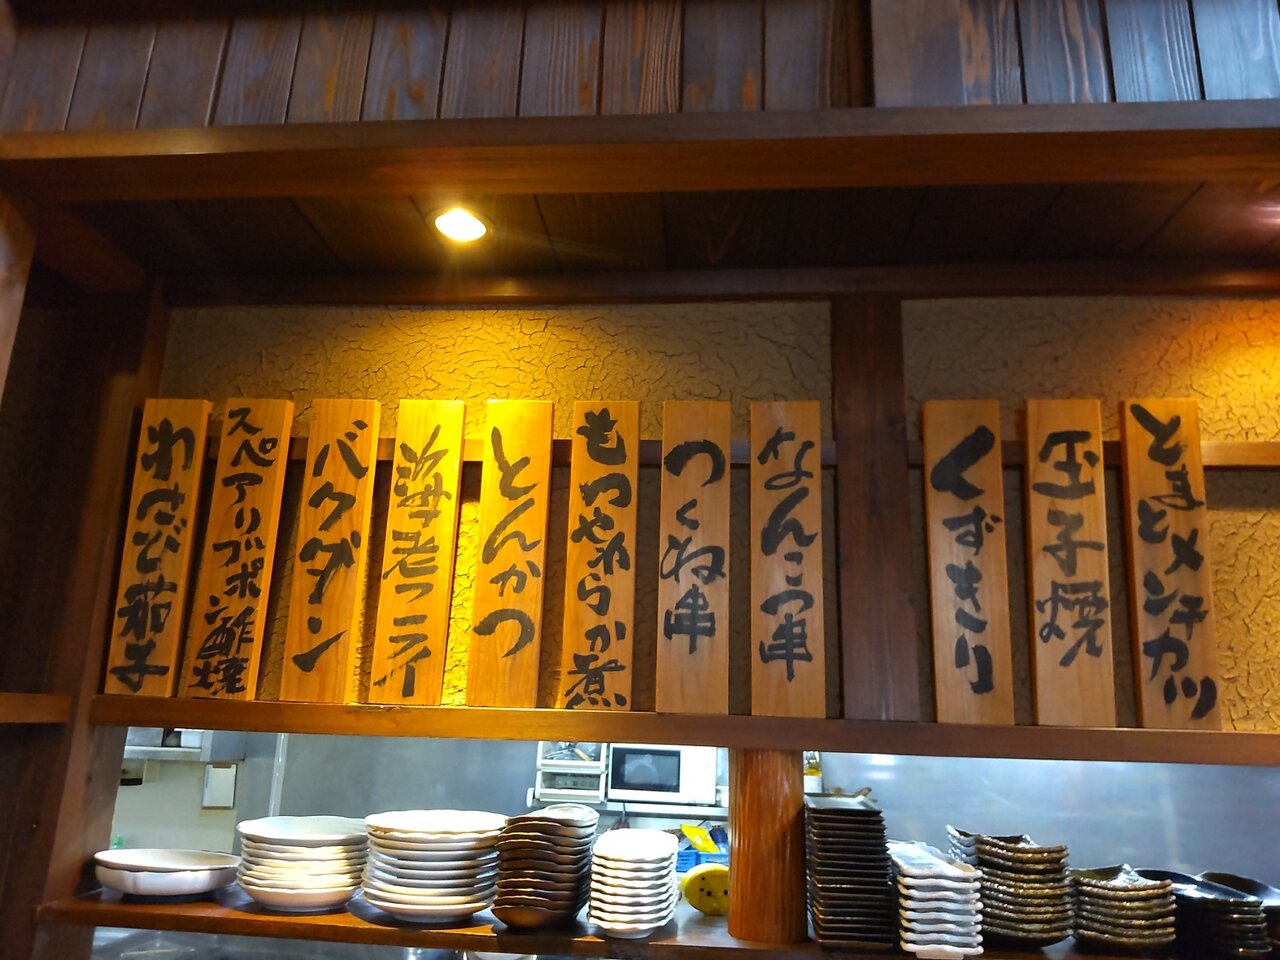 とまとメンチカツ
玉子焼
くずきり
なんこつ串
つくね串
もつやわらか煮
とんかつ
海老フライ
バクダン
スペアリブポン酢焼
わさび茄子